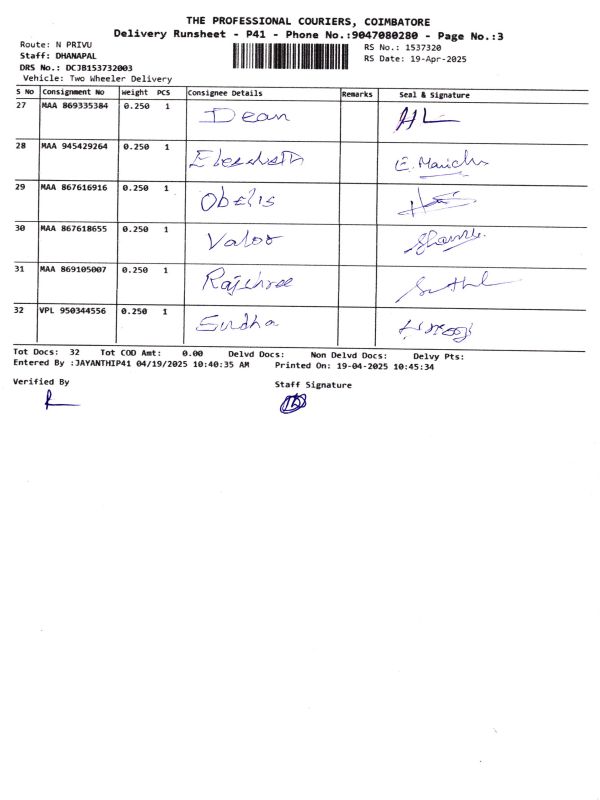 THE PROFESSIONAL COURIERS, COIMBATORE
Delivery Runsheet - P41 - Phone No.:9047080280 - Page No.:3
Route: N PRIVU
RS No.: 1537320
Staff: DHANAPAL
RS Date: 19-Apr-2025
DRS No.: DCJB153732003
Vehicle: Two Wheeler Delivery
S No Consignment No Weight PCS Consignee Details Remarks Seal & Signature
27 MAA 869335384 0.250 1 Dean
28 MAA 945429264 0.250 1
29 MAA 867616916 0.250 1 Obelis
30 MAA 867618655 0.250 1 Valoo
31 MAA 869105007 0.250 1 Rajshree
32 VPL 950344556 0.250 1 Sindha
Tot Docs: 32 Tot COD Amt: 0.00 Delvd Docs: Non Delvd Docs: Delvy Pts:
Entered By :JAYANTHIP41 04/19/2025 10:40:35 AM Printed On: 19-04-2025 10:45:34
Verified By
Staff Signature